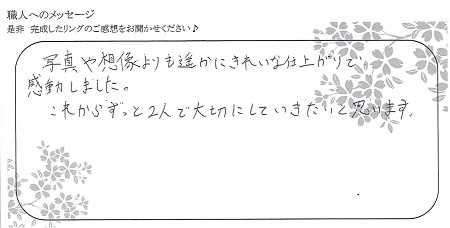 職人へのメッセージ
是非 完成したリングのご感想をお聞かせください♪
写真や想像よりも遥かにきれいな仕上がりで
感動しました。
これからずっと2人で大切にしていきたいと思います。